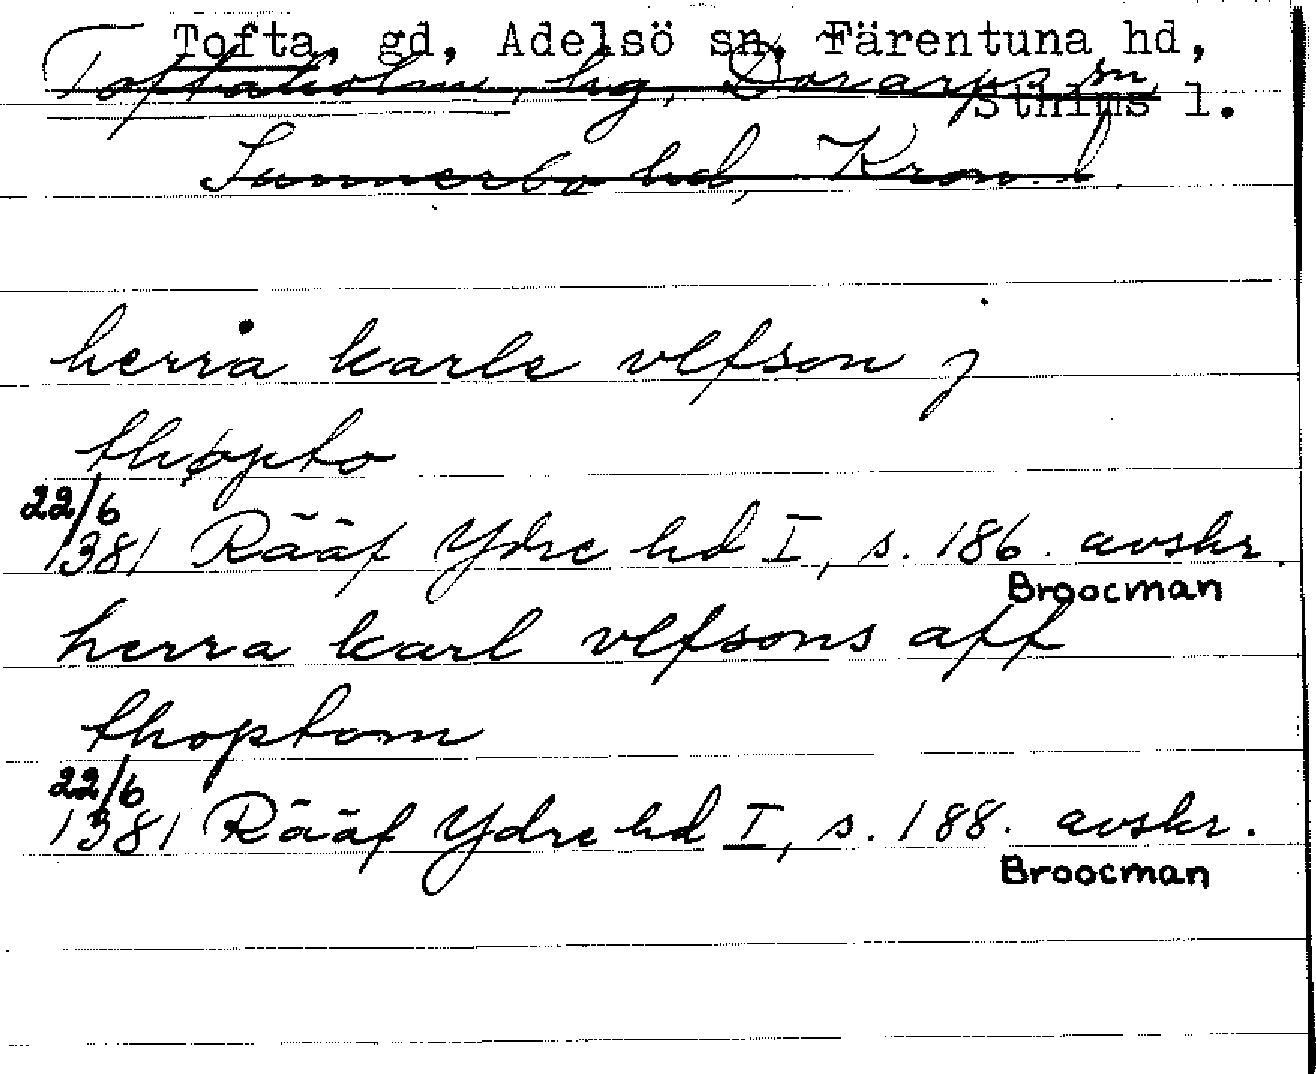 Tofta, gd, Adelsö sn, Färentuna hd,
Toftaholm, hg, Dorarps sn
Sthlms l.
Sunnerbo hd, Kron. l
herra karle vlfson j
thopto
22/6
1381 Rääf Ydre hd I, s. 186. avskr.
Broocman
herra karl vlfsons aff
thoptom
22/6
1381 Rääf Ydre hd I, s. 188. avskr.
Broocman